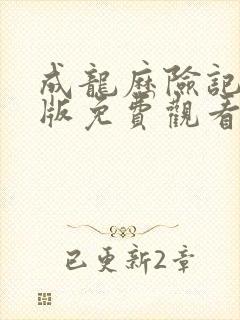 成龍歷險記
版免費觀看
已更新2章